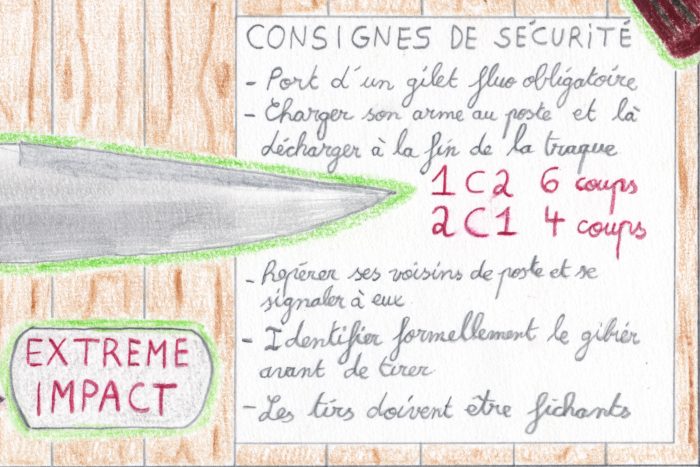 CONSIGNES DE SÉCURITÉ
- Port d'un gilet fluo obligatoire
- Charger son arme au poste et là
décharger à la fin de la traque
1 C 2 6 coups
2 C 1 4 coups
- Repérer ses voisins de poste et se
signaler à eux
- Identifier formellement le gibiér
avant de tirer
- Les tirs doivent être fichants
EXTREME
IMPACT